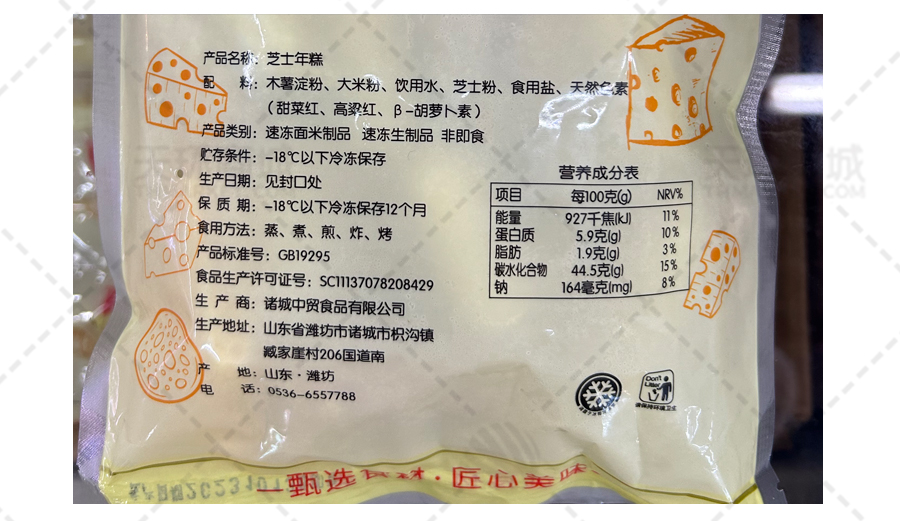 产品名称：芝士年糕
配　　料：木薯淀粉、大米粉、饮用水、芝士粉、食用盐、天然色素
（甜菜红、高粱红、β-胡萝卜素）
产品类别：速冻面米制品 速冻生制品 非即食
贮存条件：-18℃以下冷冻保存
生产日期：见封口处
保 质 期：-18℃以下冷冻保存12个月
食用方法：蒸、煮、煎、炸、烤
产品标准号：GB19295
食品生产许可证号：SC11137078208429
生 产 商：诸城中贸食品有限公司
生产地址：山东省潍坊市诸城市枳沟镇
臧家崖村206国道南
产　　地：山东·潍坊
电　　话：0536-6557788
营养成分表
项目 每100克(g) NRV%
能量 927千焦(kJ) 11%
蛋白质 5.9克(g) 10%
脂肪 1.9克(g) 3%
碳水化合物 44.5克(g) 15%
钠 164毫克(mg) 8%
Don't Litter
请保持环境卫生
一甄选食材·匠心美味